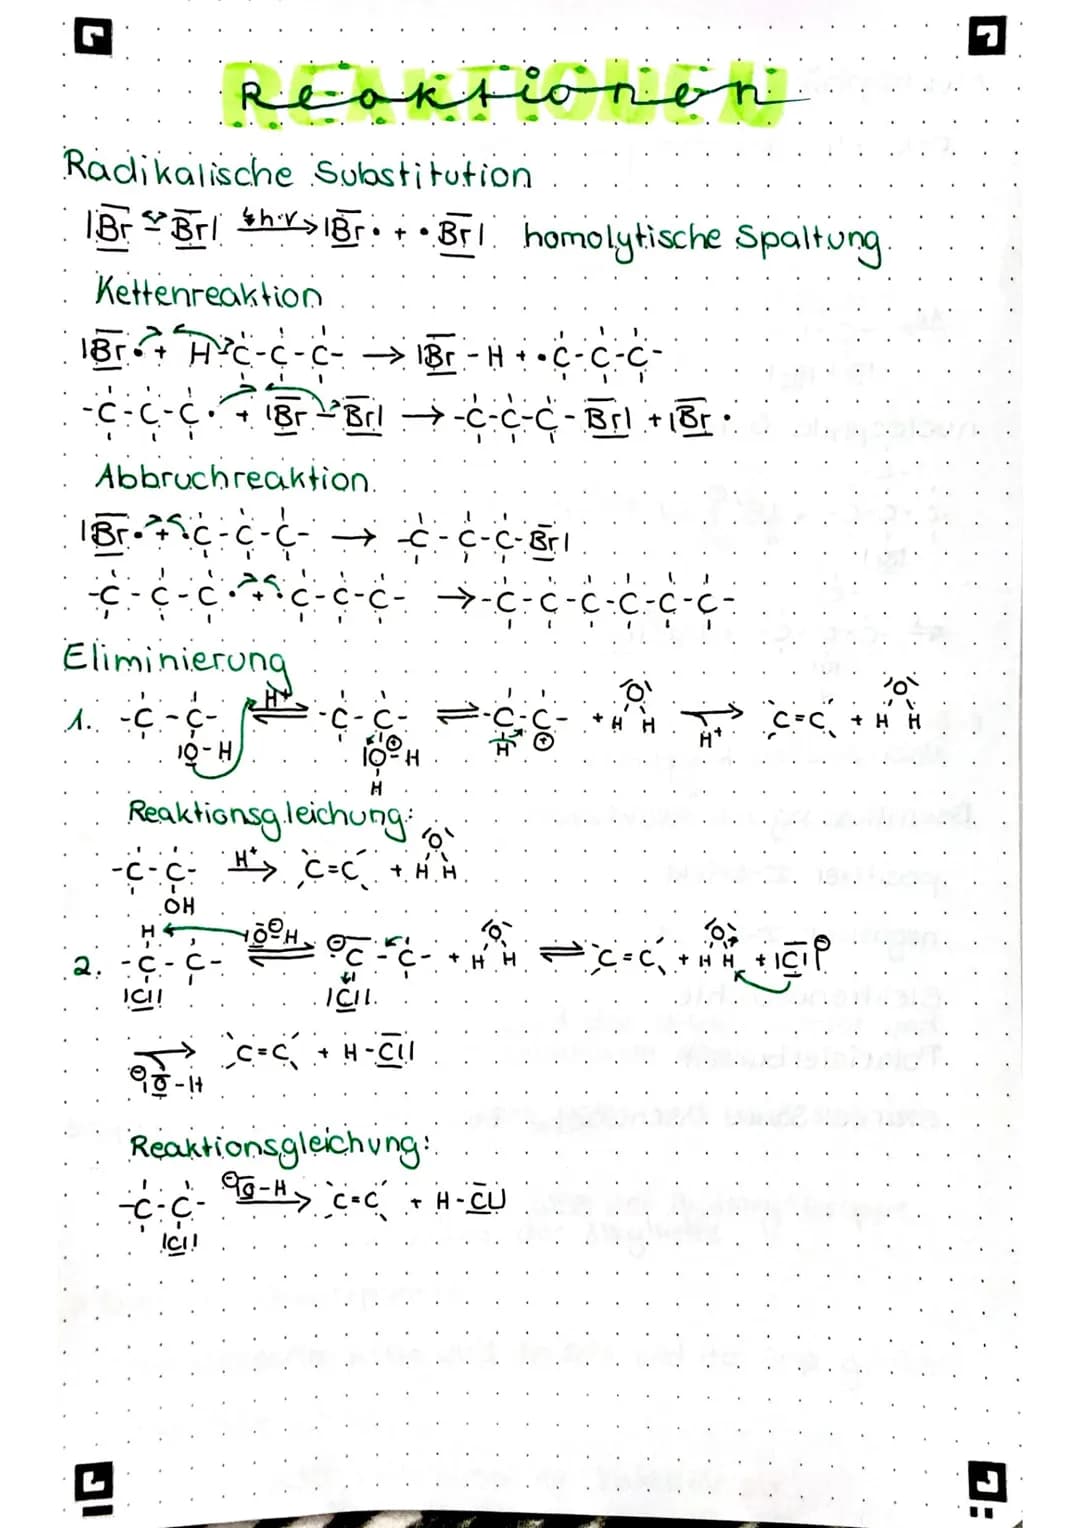 Reaktionen
Radikalische Substitution
|Br - Br| h·ν → |Br• + •Br| homolytische Spaltung
Kettenreaktion
|Br• + H-C-C-C- → |Br-H + •C-C-C-
-C-C-C• + |Br-Br| → -C-C-C-Br| + |Br•
Abbruchreaktion
|Br• + •C-C-C- → -C-C-C-Br|
-C-C-C• + •C-C-C- → -C-C-C-C-C-C-
Eliminierung
1. -C-C- |O-H H⁺ ⇌ -C-C- |O⊕-H H ⇌ -C-C- H ⊕ + H O H → H⁺ C=C + H O H
Reaktionsgleichung:
-C-C- OH H⁺ → C=C + H O H
2. H -C-C- |Cl| |O⊖-H ⇌ ⊖C-C- |Cl| + H O H ⇌ C=C + H O H + |Cl|⊖
→ ⊖|O-H C=C + H-Cl|
Reaktionsgleichung:
-C-C- |Cl| ⊖|O-H → C=C + H-Cl|